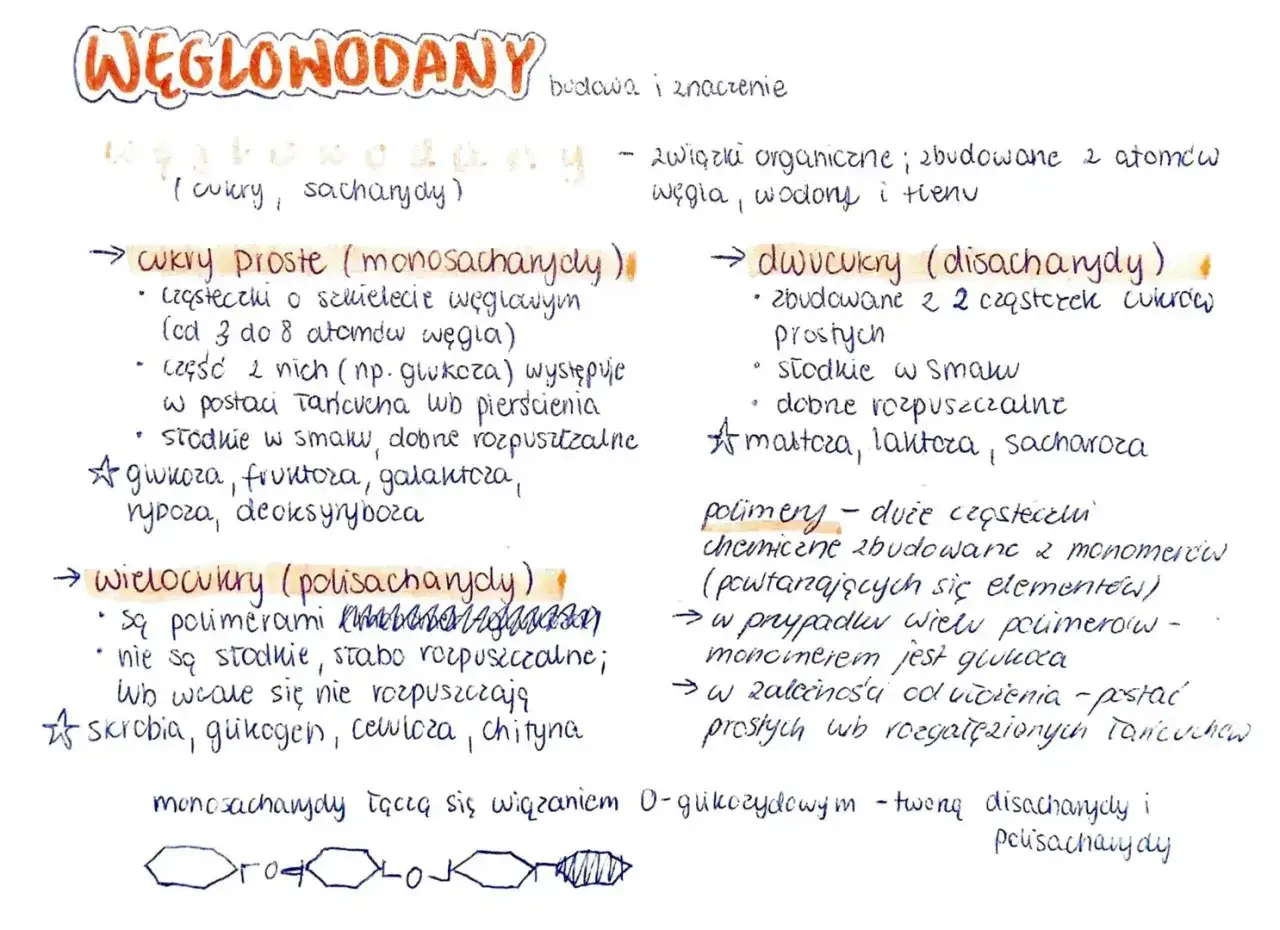 WĘGLOWODANY budowa i znaczenie
węglowodany - związki organiczne; zbudowane z atomów
(cukry, sacharydy) węgla, wodoru i tlenu
→ cukry proste (monosacharydy)
• cząsteczki o szkielecie węglowym
(od 3 do 8 atomów węgla)
• część z nich (np. glukoza) występuje
w postaci łańcucha lub pierścienia
• słodkie w smaku, dobrze rozpuszczalne
☆ glukoza, fruktoza, galaktoza,
ryboza, deoksyryboza
→ dwucukry (disacharydy)
• zbudowane z 2 cząsteczek cukrów
prostych
• słodkie w smaku
• dobrze rozpuszczalne
☆ maltoza, laktoza, sacharoza
→ wielocukry (polisacharydy)
• są polimerami
• nie są słodkie, słabo rozpuszczalne;
lub wcale się nie rozpuszczają
☆ skrobia, glikogen, celuloza, chityna
polimery - duże cząsteczki
chemiczne zbudowane z monomerów
(powtarzających się elementów)
→ w przypadku wielu polimerów -
monomerem jest glukoza
→ w zależności od ułożenia - postać
prostych lub rozgałęzionych łańcuchów
monosacharydy łączą się wiązaniem O-glikozydowym - tworzą disacharydy i
polisacharydy
O O